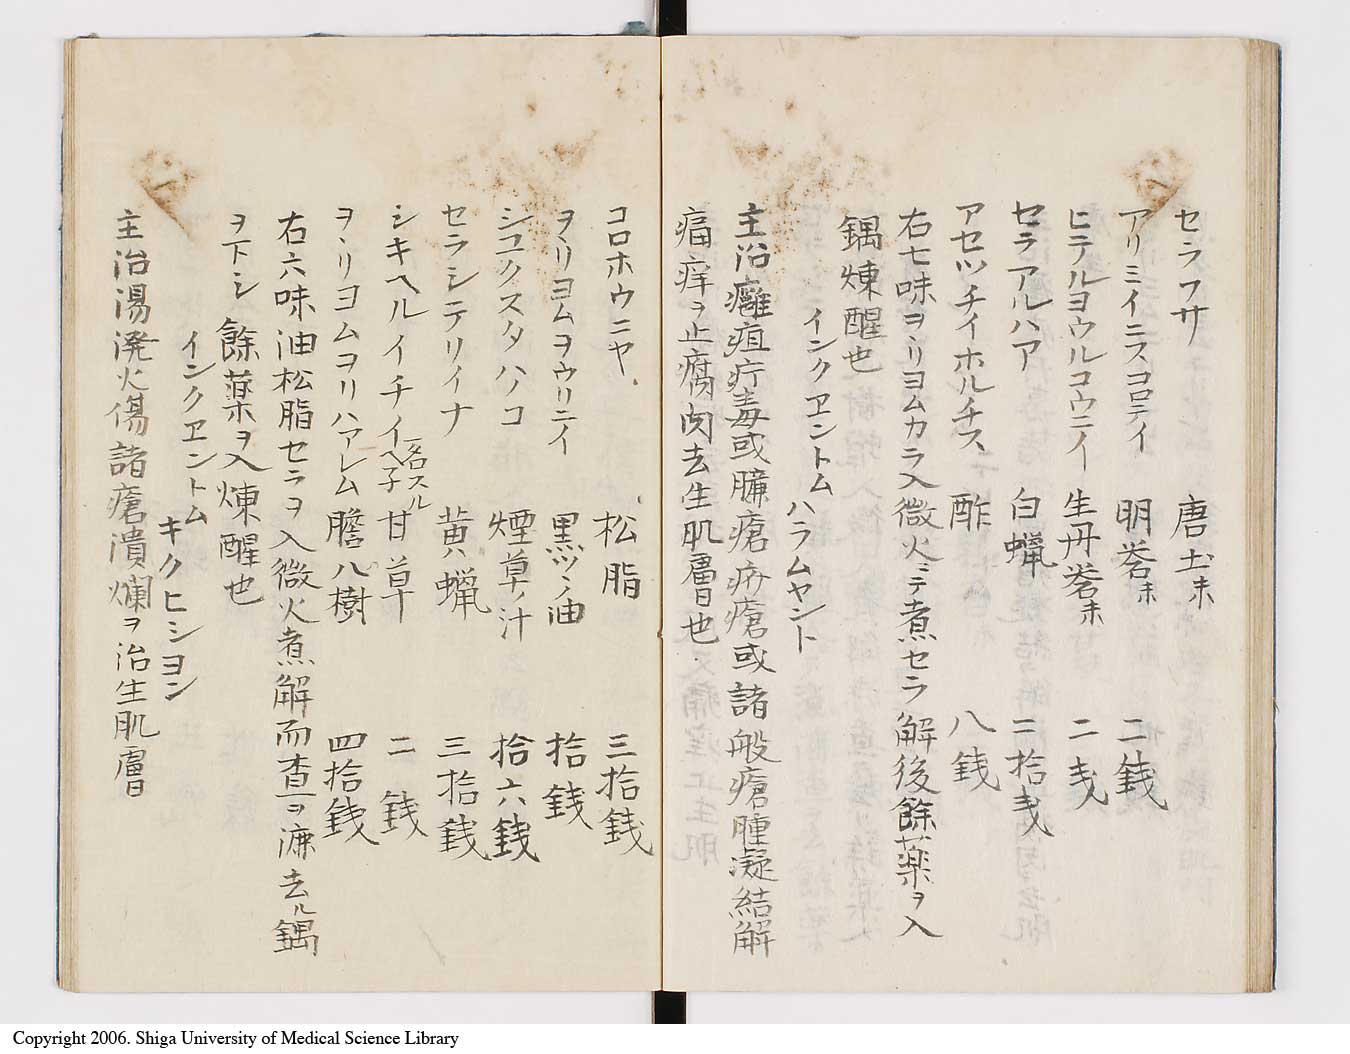 セラフサ 唐土末
アリミイニスヨロテイ 明礬末 二銭
ヒテルヨウルコウニイ 生丹礬末 二戔
セラアルハア 白蠟 二拾戔
アセツチイホルチス 酢 八銭
右七味ヲリヨムカラ入微火ニテ煮セラ解後餘薬ヲ入
鍋煉醒也
インクヱントム ハラムヤント
主治癰疽疔毒或臁瘡疥瘡或諸般瘡腫凝結解
痛痒ヲ止腐肉去生肌膚也
コロホウニヤ 松脂 三拾銭
ヲヽリヨムヲウリニイ 黒ツノ油 拾銭
シユクスタハコ 煙草ノ汁 拾六銭
セラシテリイナ 黄蠟 三拾銭
シキヘルイチイヘ子 一名スル 甘草 二銭
ヲヽリヨムヨリハアレム 膽八樹 四拾銭
右六味油松脂セラヲ入微火煮解而査ヲ漉去ル鍋
ヲ下シ餘薬ヲ入煉醒也
インクヱントム キクヒシヨン
主治湯溌火傷諸瘡潰爛ヲ治生肌膚
Copyright 2006. Shiga University of Medical Science Library